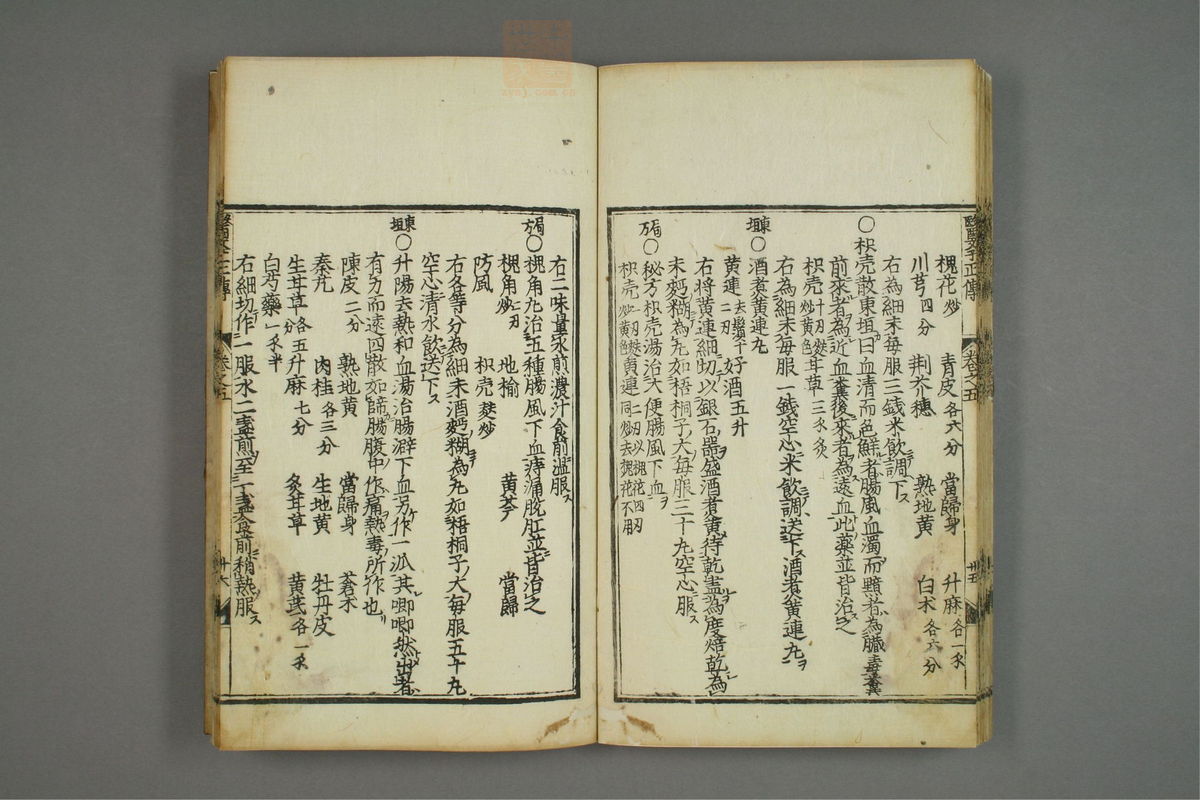 醫學正傳 卷之五 卅五
槐花炒 青皮各六分 當歸身 升麻各一錢
川芎四分 荆芥穗 熟地黃 白朮各六分
右為細末每服三錢米飲調下ス
〇枳壳散東垣曰血清而色鮮者腸風血濁而黯者為臟毒糞
前來者為近血糞後來者為遠血此藥並皆治之
枳壳 甘草三錢炙
右為細末每服一錢空心米飲調送下ス酒煮黃連丸ヲ
東垣〇酒煮黃連丸
黃連二刃去鬚 好酒五升
右將黃連細切以銀石器盛酒煮黃待乾盡為度焙乾為
末麪糊為丸如梧桐子大每服三十丸空心服ス
局方〇秘方枳壳湯治大便腸風下血ヲ
枳壳一刃炒黃色 黃連二刃以槐花四刃同炒去槐花不用
右二味量水煎濃汁食前溫服ス
局方〇槐角丸治五種腸風下血痔漏脫肛並皆治之
槐角炒一刃 地榆 黃芩 當歸
防風 枳壳麩炒
右各等分為細末酒麪糊為丸如梧桐子大每服五十丸
空心清水飲送下ス
東垣〇升陽去熱和血湯治腸澼下血另作一泒其唧唧然出者
有力而遠四散如篩腸腹中作痛熱毒所作也
陳皮二分 熟地黃 當歸身 蒼朮
秦艽 肉桂各三分 生地黃 牡丹皮
生甘草各五分 升麻七分 炙甘草 黃茋各一錢
白芍藥一錢半
右細切作一服水二盞煎至一盞食前稍熱服ス
醫學正傳 卷之五 卅六
zysj.com.cn